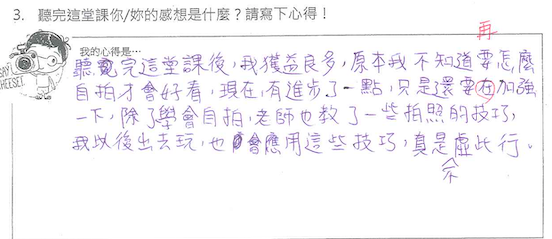 3. 聽完這堂課你/妳的感想是什麼？請寫下心得！
我的心得是…
SAY CHEESE!
再
聽完這堂課後，我獲益良多，原本我不知道要怎麼
自拍才會好看，現在，有進步了一點，只是還要在加強
一下，除了學會自拍，老師也教了一些拍照的技巧，
我以後出去玩，也會應用這些技巧，真是不虛此行。